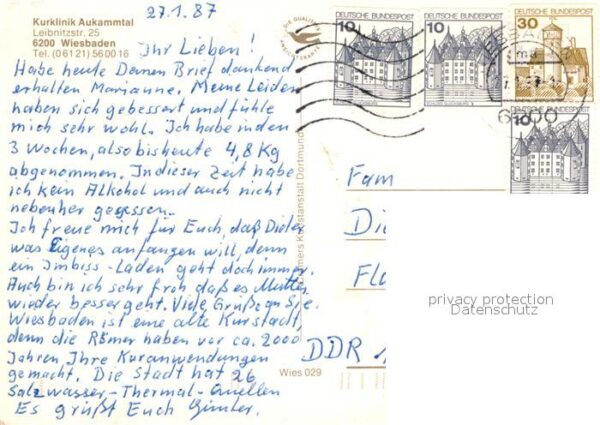 27.1.87
Kurklinik Aukammtal
Leibnitzstr. 25
6200 Wiesbaden
Tel. (0 61 21) 56 00 16
Ihr Lieben!
Habe heute Deinen Brief dankend
erhalten Marianne. Meine Leiden
haben sich gebessert und fühle
mich sehr wohl. Ich habe in den
3 Wochen, also bis heute 4,8 Kg
abgenommen. In dieser Zeit habe
ich kein Alkohol und auch nicht
nebenher gegessen.
Ich freue mich für Euch, daß Dieter
was Eigenes anfangen will, denn
ein Imbiss-Laden geht doch immer.
Auch bin ich sehr froh daß es Mutter
wieder besser geht. Viele Grüße an Sie.
Wiesbaden ist eine alte Kurstadt,
denn die Römer haben vor ca. 2000
Jahren Ihre Kuranwendungen
gemacht. Die Stadt hat 26
Salzwasser-Thermal-Quellen
Es grüßt Euch Günter.
DIE QUALITÄTS
ANSICHTSKARTE
Kunstanstalt Dortmund
Wies 029
DEUTSCHE BUNDESPOST
10
DEUTSCHE BUNDESPOST
10
DEUTSCHE BUNDESPOST
30
DEUTSCHE BUNDESPOST
10
Fam
Di
Fl
DDR
privacy protection
Datenschutz